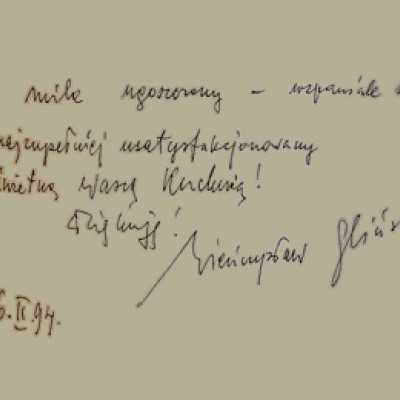 mile ugoszczony – wspaniale
najzupełniej usatysfakcjonowany
świetną Waszą Kuchnią!
Dziękuję!
Wieńczysław Glińs
6.II.94.